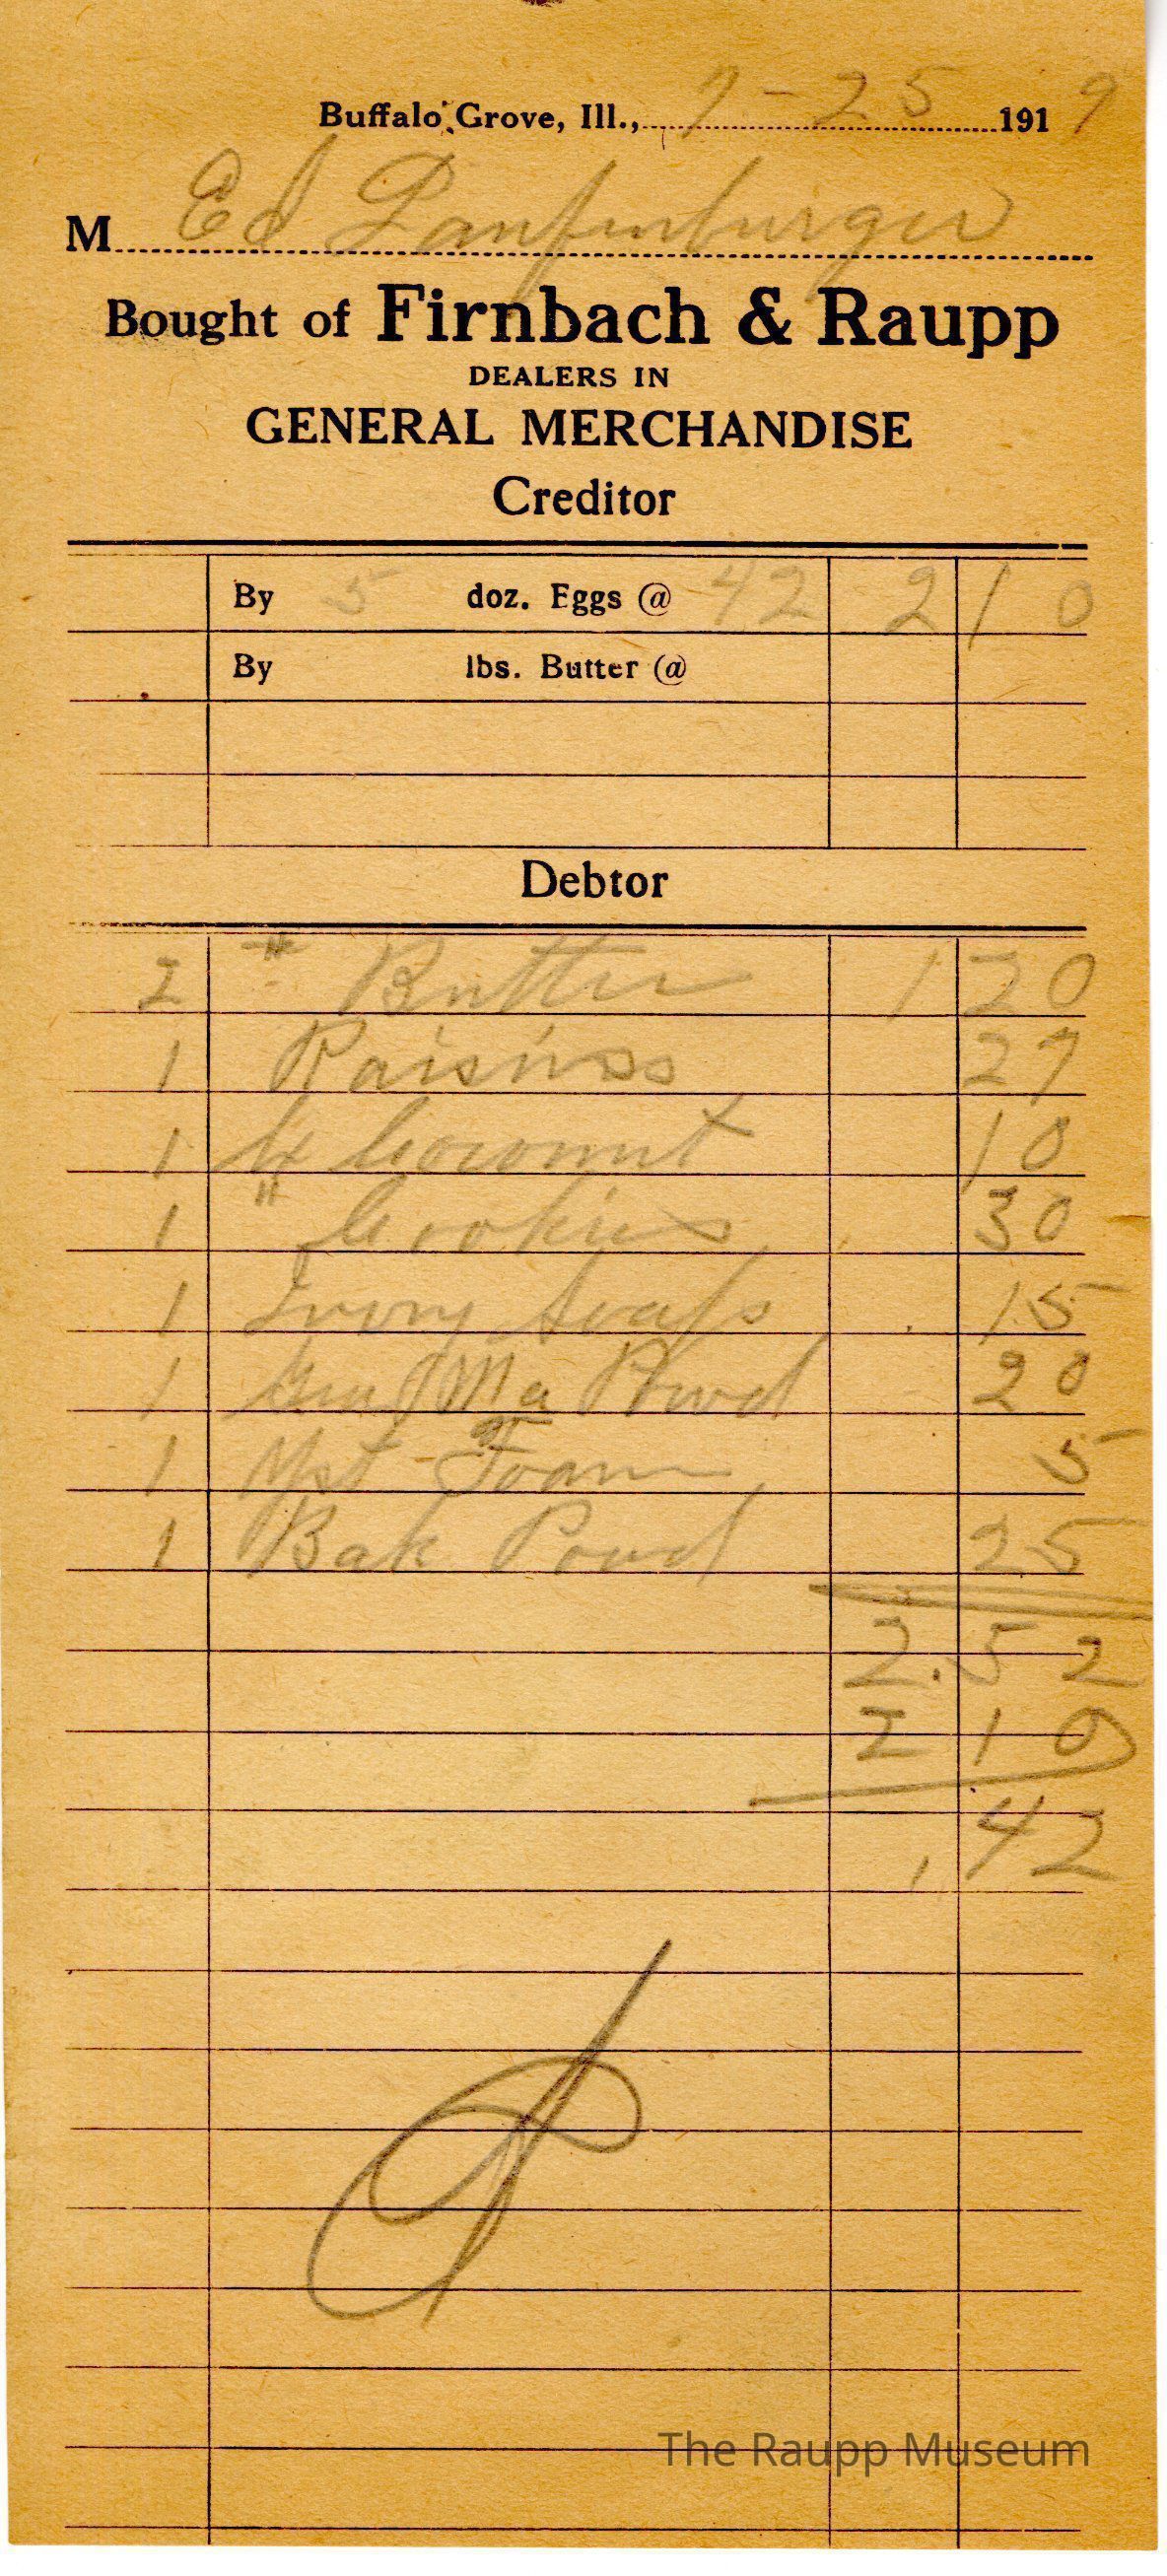 Buffalo Grove, Ill., 7-25 1919
M Ed Laufenburger
Bought of Firnbach & Raupp
DEALERS IN
GENERAL MERCHANDISE
Creditor
By 5 doz. Eggs @ 42 2 10
By lbs. Butter @
Debtor
2 # Butter 1 20
1 Raisins 27
1 Cocoanut 10
1 " Cookies 30
1 Ivory Soap 15
1 Powd 20
1 Yst Foam 5
1 Bak Powd 25
2.52
2 10
.42
The Raupp Museum